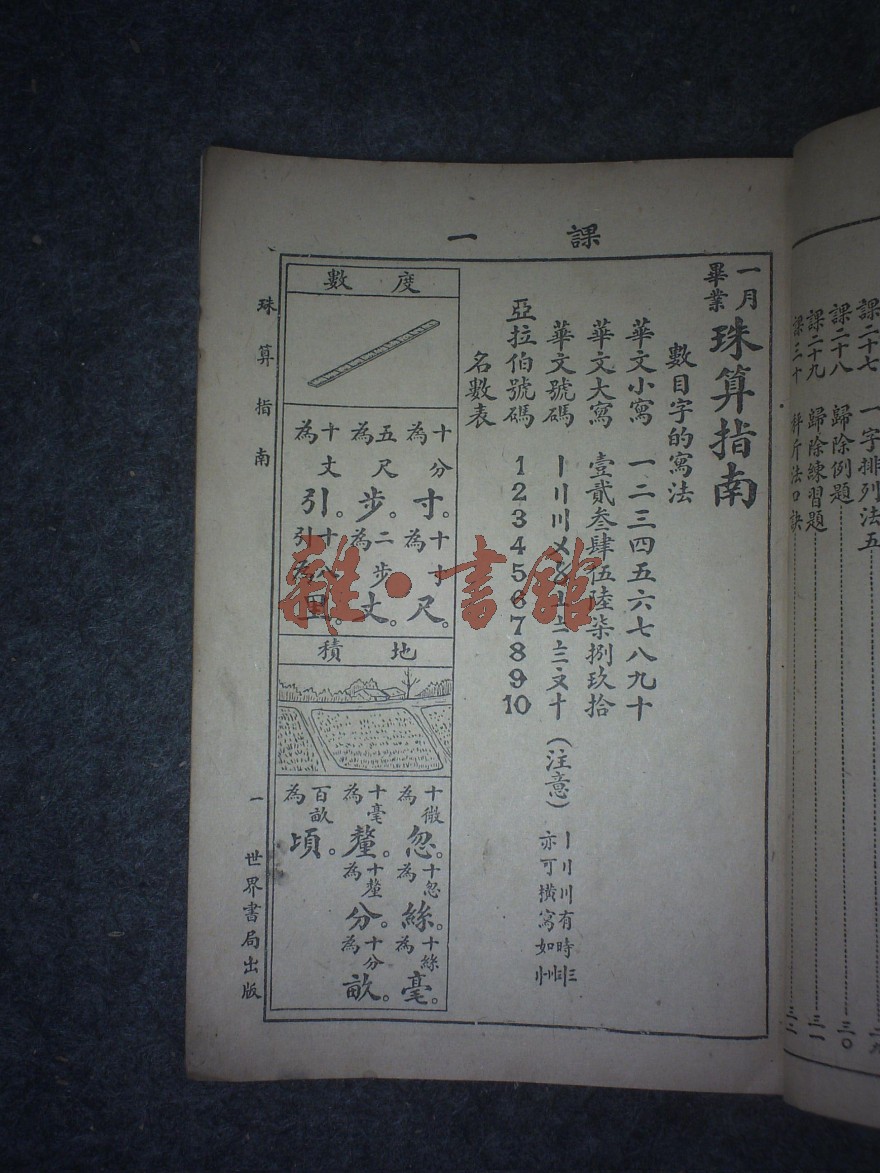 課一
一月畢業 珠算指南
數目字的寫法
華文小寫 一二三四五六七八九十
華文大寫 壹貳叁肆伍陸柒捌玖拾
華文號碼 〡〢〣〤〥〦〧〨〩十 (注意) 〡〢〣有時亦可橫寫如
亞拉伯號碼 1 2 3 4 5 6 7 8 9 10
名數表
度數
十分為寸。十寸為尺。
五尺為步。二步為丈。
十丈為引。十八引為里。
地積
十微為忽。十忽為絲。十絲為毫。
十毫為釐。十釐為分。十分為畝。
百畝為頃。
珠算指南
一
世界書局出版
雜·書館
課二十七 一字排列法五
課二十八 歸除例題 三〇
課二十九 歸除練習題 三一
課三十 斤法口訣 三二